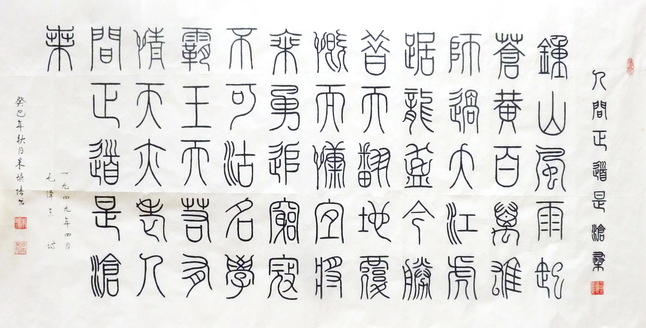 人間正道是滄桑
鍾山風雨起
蒼黃百萬雄
師過大江虎
踞龍盤今勝
昔天翻地覆
慨而慷宜將
乘勇追窮寇
不可沽名學
霸王天若有
情天亦老人
間正道是滄
桑
一九四九年四月
毛澤東詩
癸巳年秋月